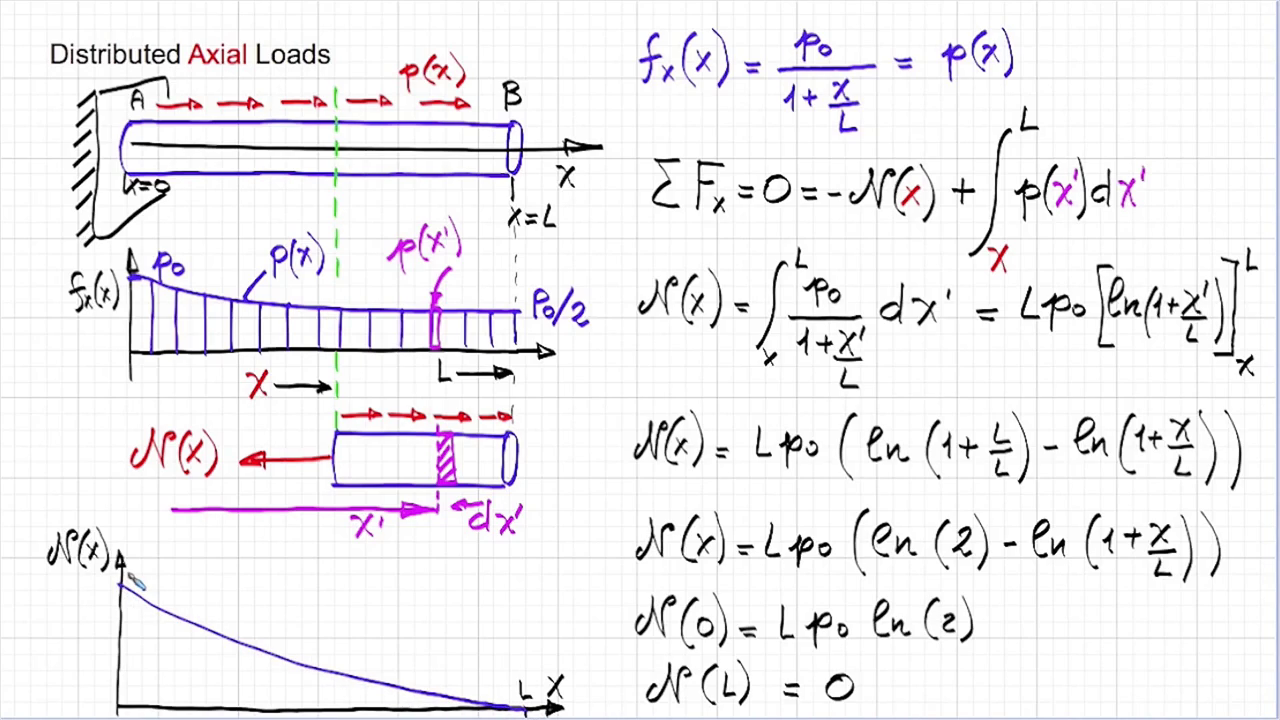 Distributed Axial Loads
p(x)
A
B
x=0
x
x=L
fx(x)
p0
p(x)
p(x')
p0/2
x
L
N(x)
x'
dx'
N(x)
L
x
fx(x) = p0/(1+x/L) = p(x)
ΣFx = 0 = -N(x) + ∫_x^L p(x')dx'
N(x) = ∫_x^L p0/(1+x'/L) dx' = Lp0 [ln(1+x'/L)]_x^L
N(x) = Lp0 (ln(1+L/L) - ln(1+x/L))
N(x) = Lp0 (ln(2) - ln(1+x/L))
N(0) = Lp0 ln(2)
N(L) = 0